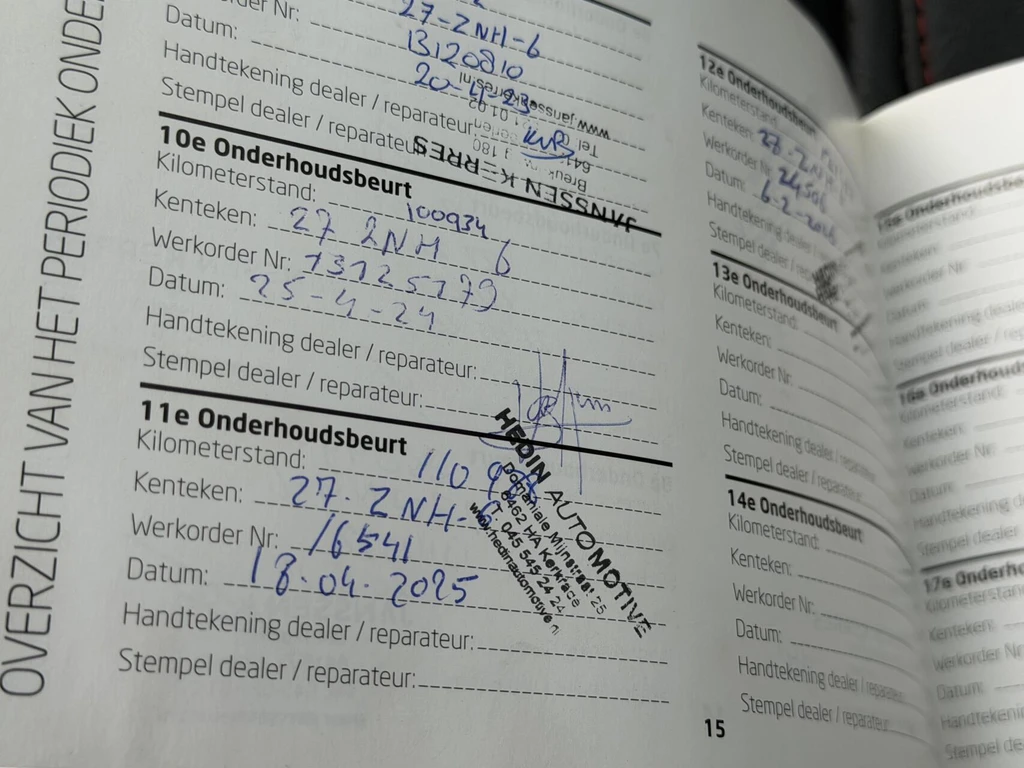 OVERZICHT VAN HET PERIODIEK ONDE
27-ZNH-6
13120810
Datum:
20-4-23
Handtekening dealer / reparateur:
Stempel dealer / reparateur:
JANSSEN K RRES
10e Onderhoudsbeurt
Kilometerstand: 100934
Kenteken: 27 ZNH 6
Werkorder Nr: 13125179
Datum: 25-4-24
Handtekening dealer / reparateur:
Stempel dealer / reparateur:
11e Onderhoudsbeurt
Kilometerstand: 110
Kenteken: 27-ZNH-6
Werkorder Nr: 16541
Datum: 18-04-2025
Handtekening dealer / reparateur:
Stempel dealer / reparateur:
HEDIN AUTOMOTIVE
Domaniale Mijnstraat 25
6462 HA Kerkrade
T. 045 545 24 24
www.hedinautomotive.n
12e Onderhoudsbeurt
Kilometerstand:
Kenteken:
Werkorder Nr:
Datum:
Handtekening dealer
Stempel dealer
13e Onderhoudsbeurt
Kilometerstand:
Kenteken:
Werkorder Nr:
Datum:
Handtekening dealer / reparateur
Stempel dealer / reparateur
14e Onderhoudsbeurt
Kilometerstand:
Kenteken:
Werkorder Nr:
Datum:
Handtekening dealer / reparateur
Stempel dealer / reparateur
15
Kilometerstand:
Kenteken:
Werkorder Nr:
Datum:
Handtekening dealer
Stempel dealer / rep
16e Onderhouds
Kilometerstand:
Kenteken:
Werkorder Nr:
Datum:
Handtekening dea
Stempel dealer /
17e Onderho
Kilometerstan
Kenteken:
Werkorder Nr
Datum:
Handtekenin
Stempel dea